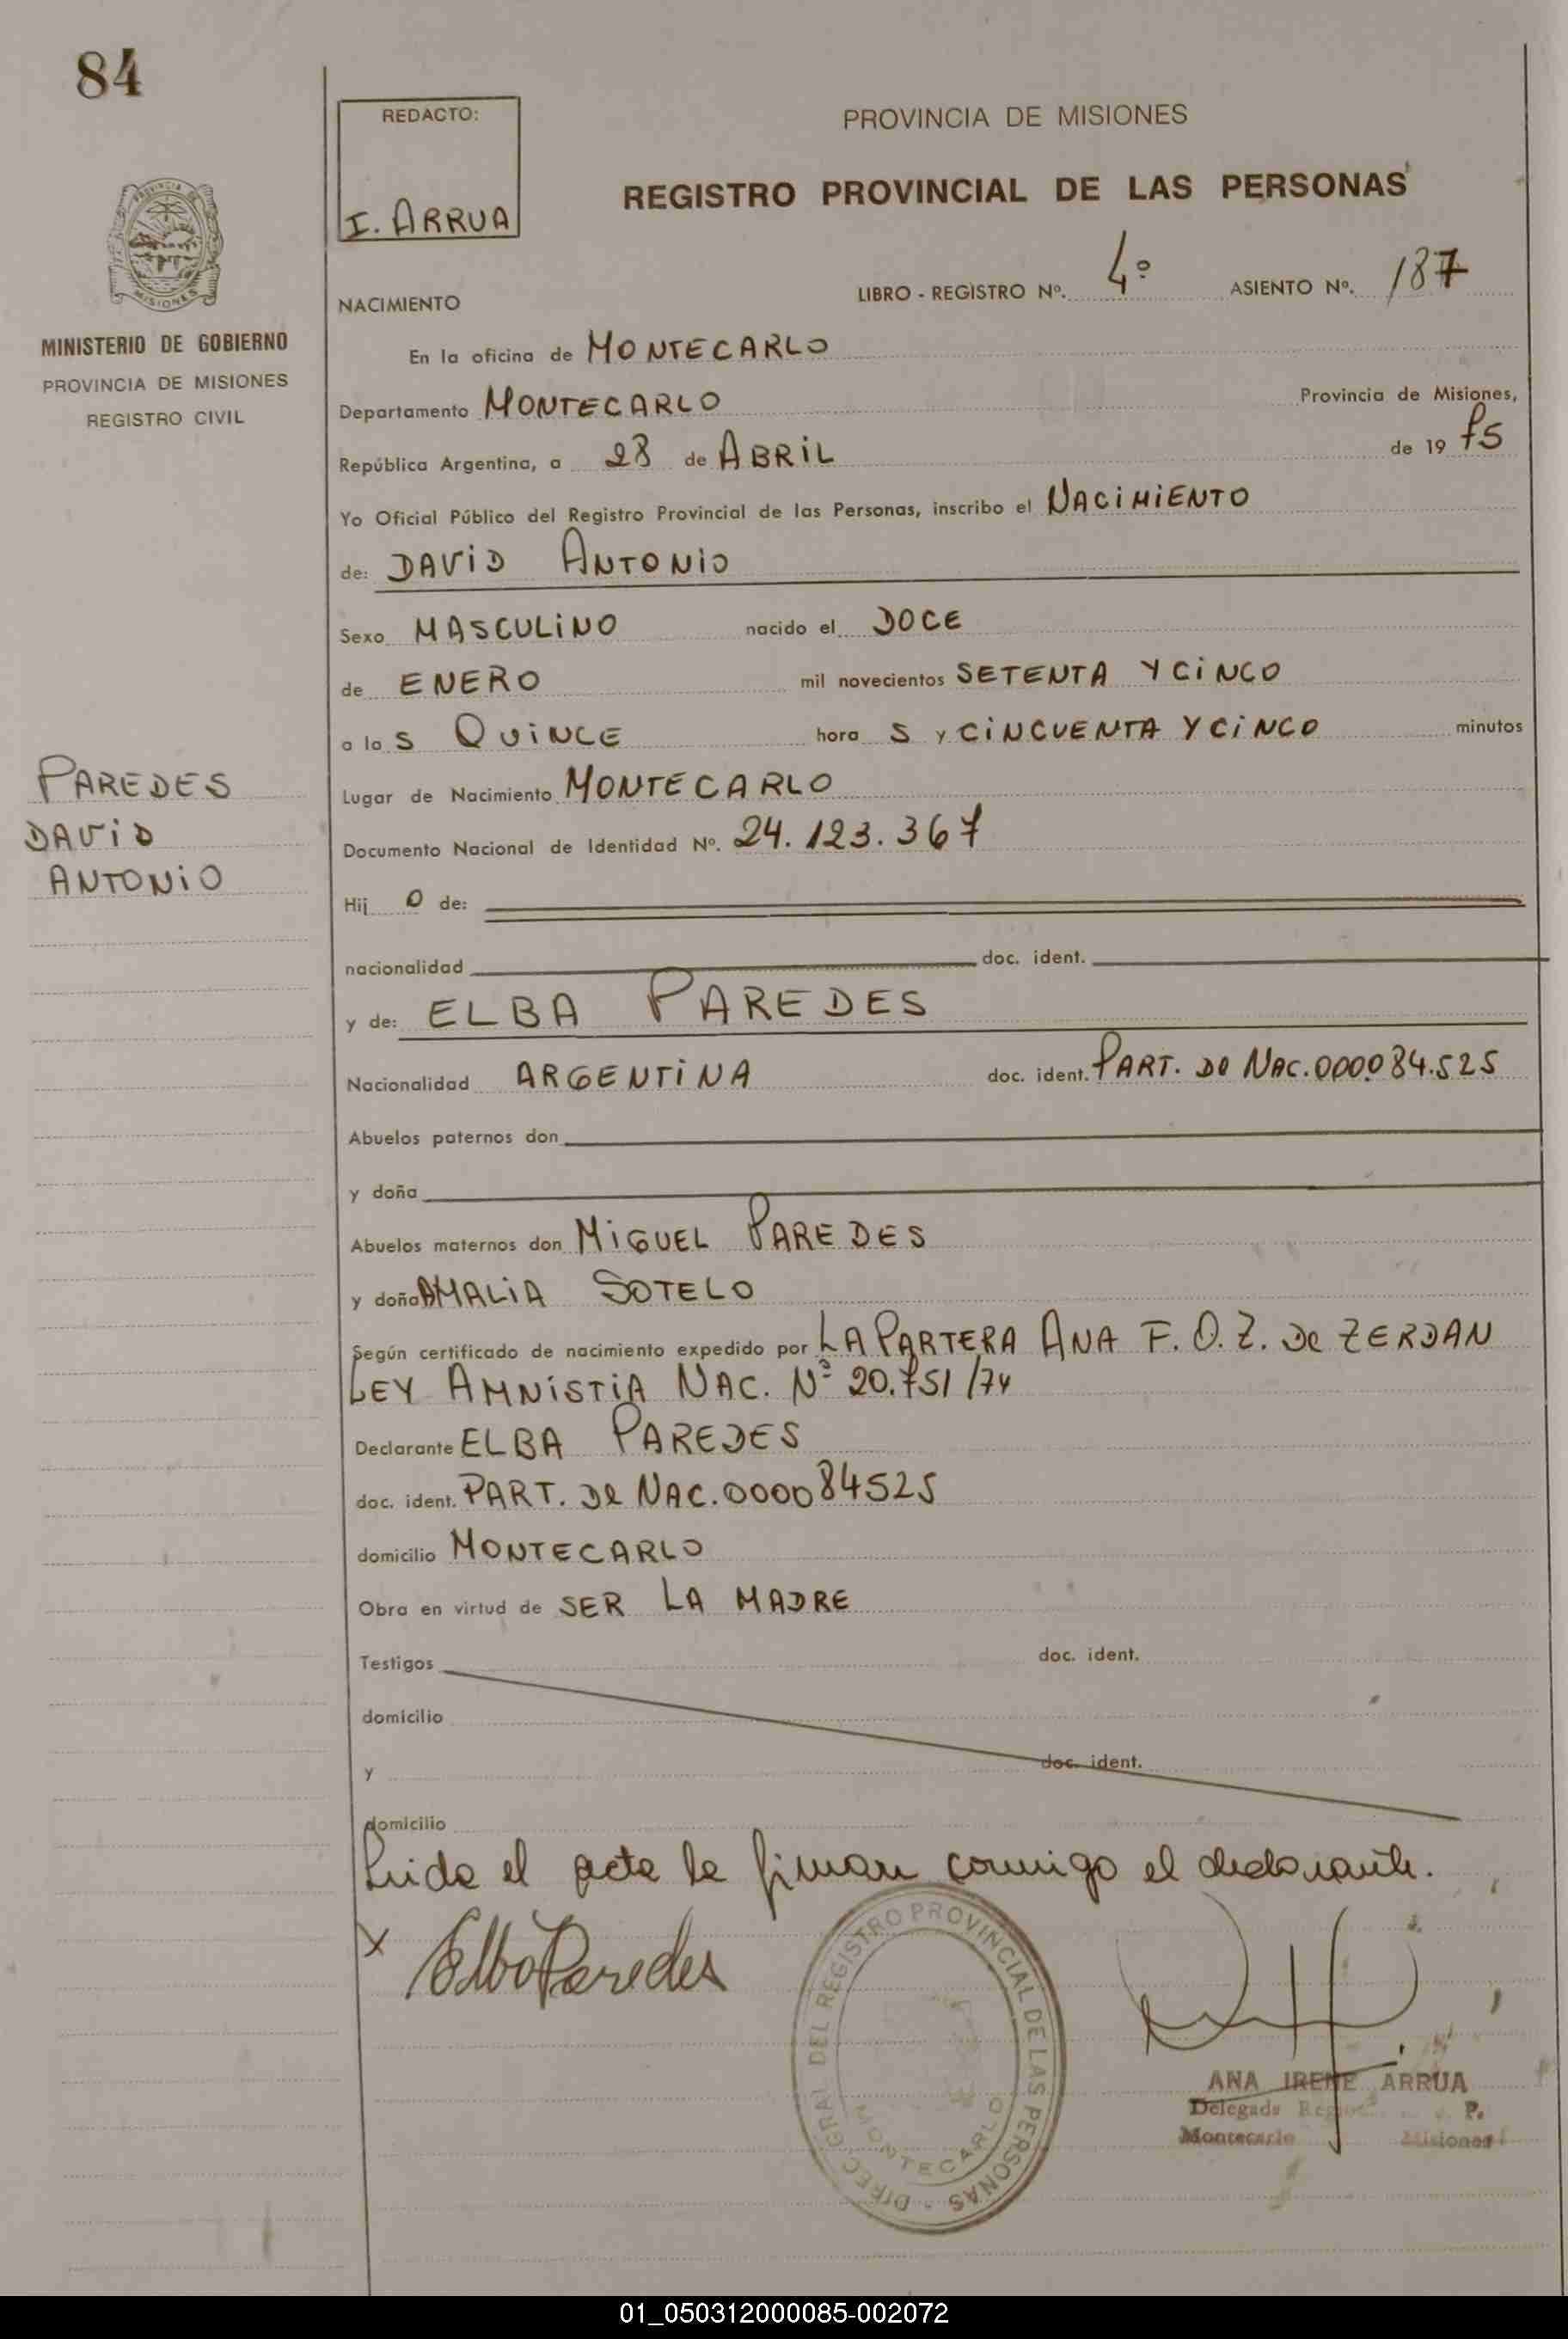 84
REDACTO:
I. ARRUA
PROVINCIA DE MISIONES
REGISTRO PROVINCIAL DE LAS PERSONAS
MINISTERIO DE GOBIERNO
PROVINCIA DE MISIONES
REGISTRO CIVIL
NACIMIENTO
LIBRO - REGISTRO Nº. 4º ASIENTO Nº. 187
En la oficina de MONTECARLO
Departamento MONTECARLO Provincia de Misiones,
República Argentina, a 28 de ABRIL de 19 75
Yo Oficial Público del Registro Provincial de las Personas, inscribo el NACIMIENTO
de: DAVID ANTONIO
Sexo MASCULINO nacido el DOCE
de ENERO mil novecientos SETENTA Y CINCO
a la S QUINCE hora S y CINCUENTA Y CINCO minutos
PAREDES
DAVID
ANTONIO
Lugar de Nacimiento MONTECARLO
Documento Nacional de Identidad Nº. 24.123.367
Hij O de:
nacionalidad doc. ident.
y de: ELBA PAREDES
Nacionalidad ARGENTINA doc. ident. PART. DE NAC. 000084.525
Abuelos paternos don
y doña
Abuelos maternos don MIGUEL PAREDES
y doña AMALIA SOTELO
Según certificado de nacimiento expedido por LA PARTERA ANA F. O. Z. De ZERDAN
LEY AMNISTIA NAC. Nº 20.751/74
Declarante ELBA PAREDES
doc. ident. PART. De NAC. 000084525
domicilio MONTECARLO
Obra en virtud de SER LA MADRE
Testigos doc. ident.
domicilio
y doc. ident.
domicilio
Leida el acta la firman conmigo el declarante.
x Elba Paredes
DIREC. GRAL DEL REGISTRO PROVINCIAL DE LAS PERSONAS -
MONTECARLO
ANA IRENE ARRUA
Delegada P.
Montecarlo Misiones
01_050312000085-002072